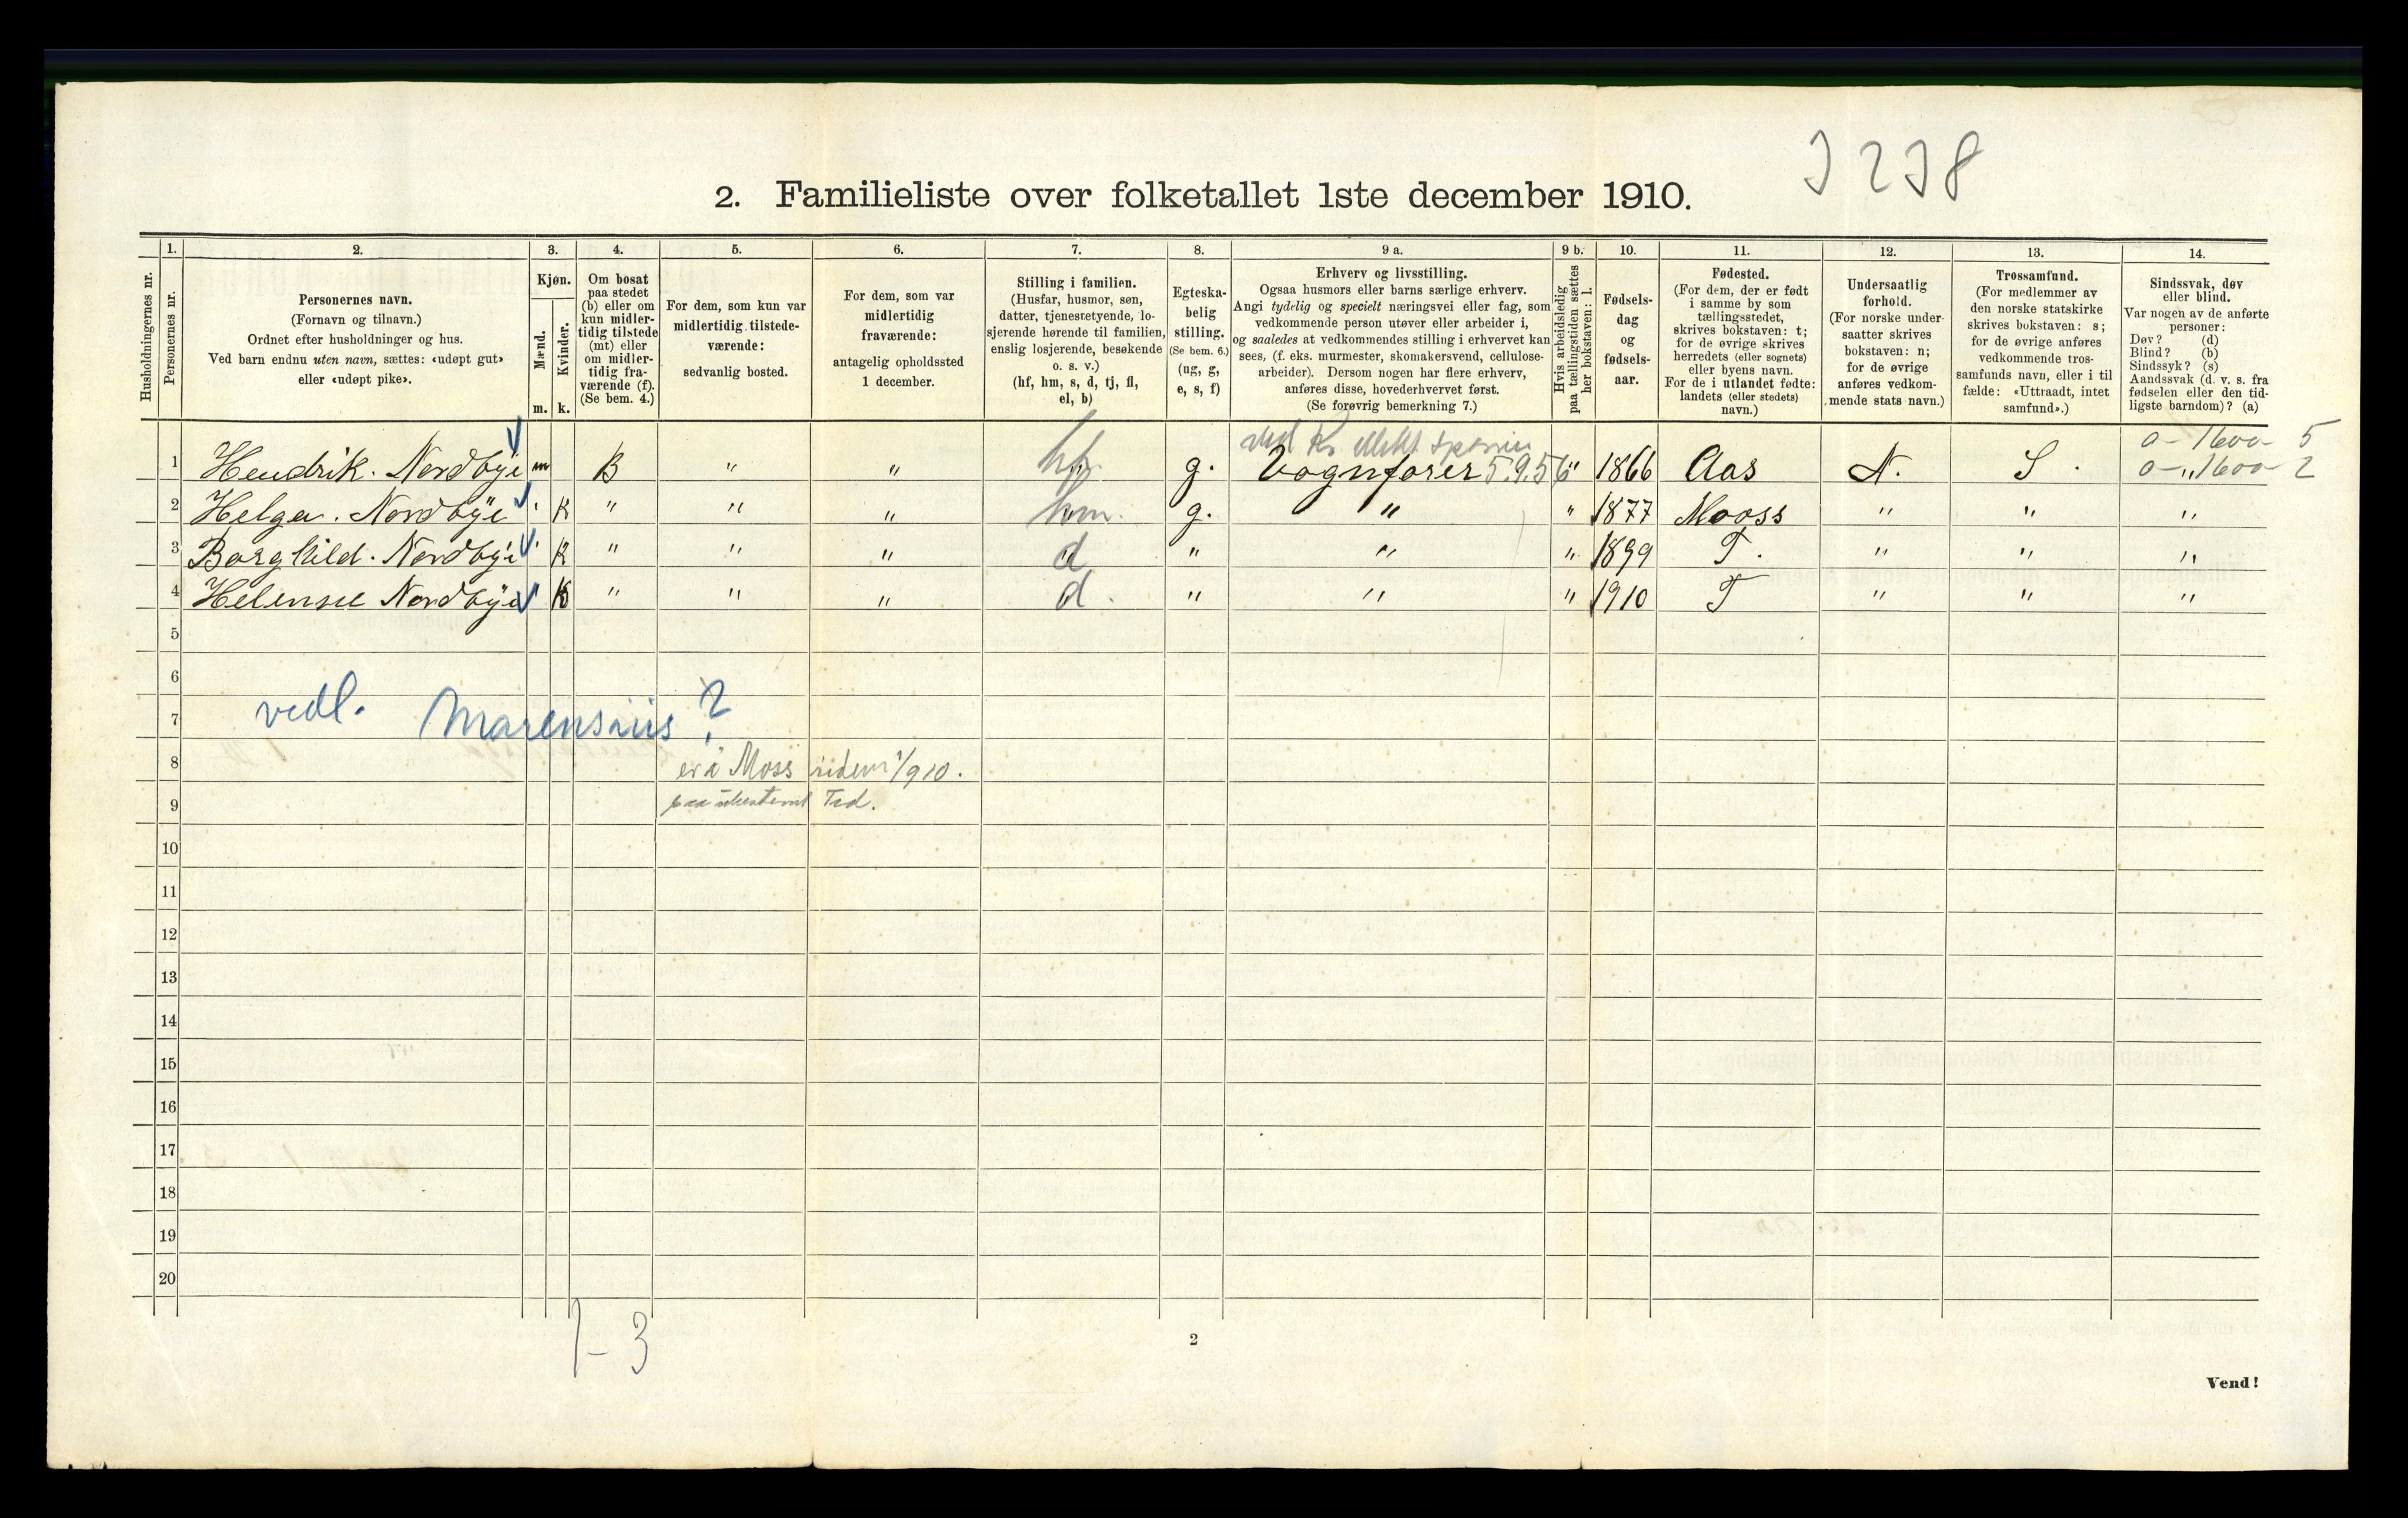 3238
2. Familieliste over folketallet 1ste december 1910.
Husholdningernes nr.
1. Personernes nr.
2. Personernes navn.
(Fornavn og tilnavn.)
Ordnet efter husholdninger og hus.
Ved barn endnu uten navn, sættes: «udøpt gut»
eller «udøpt pike».
3. Kjøn.
Mænd. m.
Kvinder. k.
4. Om bosat
paa stedet
(b) eller om
kun midler-
tidig tilstede
(mt) eller
om midler-
tidig fra-
værende (f).
(Se bem. 4.)
5. For dem, som kun var
midlertidig tilstede-
værende:
sedvanlig bosted.
6. For dem, som var
midlertidig
fraværende:
antagelig opholdssted
1 december.
7. Stilling i familien.
(Husfar, husmor, søn,
datter, tjenestetyende, lo-
sjerende hørende til familien,
enslig losjerende, besøkende
o. s. v.)
(hf, hm, s, d, tj, fl,
el, b)
8. Egteska-
belig
stilling.
(Se bem. 6.)
(ug, g,
e, s, f)
9 a. Erhverv og livsstilling.
Ogsaa husmors eller barns særlige erhverv.
Angi tydelig og specielt næringsvei eller fag, som
vedkommende person utøver eller arbeider i,
og saaledes at vedkommendes stilling i erhvervet kan
sees, (f. eks. murmester, skomakersvend, cellulose-
arbeider). Dersom nogen har flere erhverv,
anføres disse, hovederhvervet først.
(Se forøvrig bemerkning 7.)
9 b. Hvis arbeidsledig
paa tællingstiden sættes
her bokstaven: l.
10. Fødsels-
dag
og
fødsels-
aar.
11. Fødested.
(For dem, der er født
i samme by som
tællingsstedet,
skrives bokstaven: t;
for de øvrige skrives
herredets (eller sognets)
eller byens navn.
For de i utlandet fødte:
landets (eller stedets)
navn.)
12. Undersaatlig
forhold.
(For norske under-
saatter skrives
bokstaven: n;
for de øvrige
anføres vedkom-
mende stats navn.)
13. Trossamfund.
(For medlemmer av
den norske statskirke
skrives bokstaven: s;
for de øvrige anføres
vedkommende tros-
samfunds navn, eller i til
fælde: «Uttraadt, intet
samfund».)
14. Sindssvak, døv
eller blind.
Var nogen av de anførte
personer:
Døv? (d)
Blind? (b)
Sindssyk? (s)
Aandssvak (d. v. s. fra
fødselen eller den tid-
ligste barndom)? (a)
ved Kr. elekt. sporvei 0-1600- 5
1 Hendrik. Nordbye m B " " hf g. Vognfører 5.9.56 " 1866 Aas N. S. 0-"1600- 2
2 Helga. Nordbye " K " " " hm. g. " " 1877 Mooss " " "
3 Borghild. Nordbye " K " " " d " " " 1899 T. " " "
4 Helense Nordbye " K " " " d. " " " 1910 T " " "
5
6
7 vedl. Marensius ?
8 er i Moss siden 1/910.
9 paa ubestemt Tid.
10
11
12
13
14
15
16
17
18
19
20
1-3
2
Vend!